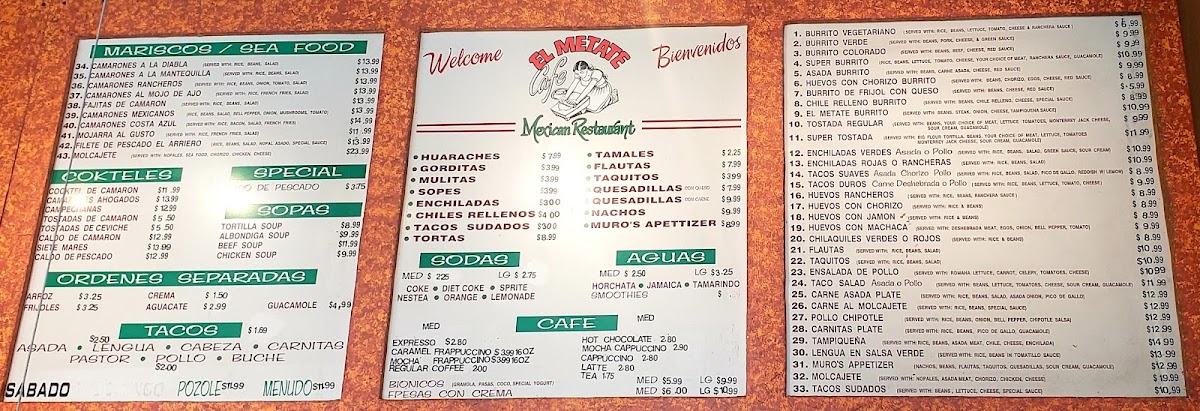 MARISCOS / SEA FOOD
34. CAMARONES A LA DIABLA (SERVED WITH: RICE, BEANS, SALAD) $13.99
35. CAMARONES A LA MANTEQUILLA (SERVED WITH: RICE, BEANS, SALAD) $13.99
36. CAMARONES RANCHEROS (SERVED WITH: RICE, BEANS, ONION, TOMATO, SALAD) $13.99
37. CAMARONES AL MOJO DE AJO (SERVED WITH: RICE, FRENCH FRIES, SALAD) $13.99
38. FAJITAS DE CAMARON (SERVED WITH: RICE, BEANS, SALAD) $13.99
39. CAMARONES MEXICANOS (SERVED WITH: RICE, BEANS, SALAD, BELL PEPPER, ONION, MUSHROOMS, TOMATO) $13.99
40. CAMARONES COSTA AZUL (SERVED WITH: RICE, BACON, SALAD, FRENCH FRIES) $14.99
41. MOJARRA AL GUSTO (SERVED WITH: RICE, SALAD, FRENCH FRIES) $11.99
42. FILETE DE PESCADO EL ARRIERO (SERVED WITH: RICE, BEANS, SALAD, NOPAL, ASADO, SPECIAL SAUCE) $13.99
43. MOLCAJETE (SERVED WITH: NOPALES, SEA FOOD, CHORIZO, CHICKEN, CHEESE) $23.99
COKTELES
COCKTEL DE CAMARON $11.99
CAMARONES AHOGADOS $13.99
CAMPECHANAS $12.99
TOSTADAS DE CAMARON $5.50
TOSTADAS DE CEVICHE $5.50
CALDO DE CAMARON $12.99
SIETE MARES $13.99
CALDO DE PESCADO $12.99
SPECIAL
DE PESCADO $3.75
SOPAS
TORTILLA SOUP $8.99
ALBONDIGA SOUP $9.99
BEEF SOUP $11.99
CHICKEN SOUP $9.99
ORDENES SEPARADAS
ARROZ $3.25
CREMA $1.50
FRIJOLES $3.25
AGUACATE $2.99
GUACAMOLE $4.99
TACOS $1.69
$2.50
ASADA • LENGUA • CABEZA • CARNITAS
PASTOR • POLLO • BUCHE
$2.00
SABADO POZOLE $11.99 MENUDO $11.99
Welcome
EL METATE
Cafe
Bienvenidos
Mexican Restaurant
• HUARACHES $7.99
• GORDITAS $3.99
• MULITAS $3.99
• SOPES $3.99
• ENCHILADAS $3.00
• CHILES RELLENOS $4.00
• TACOS SUDADOS $3.00
• TORTAS $8.99
• TAMALES $2.25
• FLAUTAS $7.99
• TAQUITOS $3.99
• QUESADILLAS CON QUESO $7.99
• QUESADILLAS CON CARNE $9.99
• NACHOS $9.99
• MURO'S APETTIZER $8.99
SODAS
MED $2.25 LG $2.75
COKE • DIET COKE • SPRITE
NESTEA • ORANGE • LEMONADE
AGUAS
MED $2.50 LG $3.25
HORCHATA • JAMAICA • TAMARINDO
SMOOTHIES $
CAFE
MED
MED
EXPRESSO $2.80
CARAMEL FRAPPUCCINO $3.99 16OZ
MOCHA FRAPPUCCINO $3.99 16OZ
REGULAR COFFEE 2.00
HOT CHOCOLATE 2.80
MOCHA CAPPUCCINO 2.90
CAPPUCCINO 2.80
LATTE 2.80
TEA 1.75
BIONICOS (GRANOLA, PASAS, COCO, SPECIAL YOGURT) MED $5.99 LG $9.99
FRESAS CON CREMA MED $6.00 LG $10.99
1. BURRITO VEGETARIANO (SERVED WITH: RICE, BEANS, LETTUCE, TOMATO, CHEESE & RANCHERA SAUCE) $6.99
2. BURRITO VERDE (SERVED WITH: BEANS, PORK, CHEESE & GREEN SAUCE) $9.99
3. BURRITO COLORADO (SERVED WITH: BEANS, BEEF, CHEESE, RED SAUCE) $9.99
4. SUPER BURRITO (SERVED WITH: RICE, BEANS, LETTUCE, TOMATO, CHEESE, YOUR CHOICE OF MEAT, RANCHERA SAUCE, GUACAMOLE) $10.99
5. ASADA BURRITO (SERVED WITH: BEANS, CARNE ASADA, CHEESE, RED SAUCE) $9.99
6. HUEVOS CON CHORIZO BURRITO (SERVED WITH: BEANS, CHORIZO, EGGS, CHEESE, RED SAUCE) $8.99
7. BURRITO DE FRIJOL CON QUESO (SERVED WITH: BEANS, CHEESE, RED SAUCE) $5.99
8. CHILE RELLENO BURRITO (SERVED WITH: BEANS, CHILE RELLENO, CHEESE, SPECIAL SAUCE) $8.99
9. EL METATE BURRITO (SERVED WITH: BEANS, STEAK, ONION, CHEESE, TAMPIQUENA SAUCE) $10.99
10. TOSTADA REGULAR (SERVED WITH: BEANS, YOUR CHOICE OF MEAT, LETTUCE, TOMATOES, MONTERREY JACK CHEESE, SOUR CREAM, GUACAMOLE) $9.99
11. SUPER TOSTADA (SERVED WITH: BIG FLOUR TORTILLA, BEANS, YOUR CHOICE OF MEAT, LETTUCE, TOMATOES MONTERREY JACK CHEESE, SOUR CREAM, GUACAMOLE) $11.99
12. ENCHILADAS VERDES Asada o Pollo (SERVED WITH: RICE, BEANS, SALAD, GREEN SAUCE, SOUR CREAM) $10.99
13. ENCHILADAS ROJAS O RANCHERAS (SERVED WITH: RICE, BEANS, SALAD) $10.99
14. TACOS SUAVES Asada Chorizo Pollo (SERVED WITH: RICE, BEANS, SALAD, PICO DE GALLO, REDDISH W/ LEMON) $8.99
15. TACOS DUROS Carne Deshebrada o Pollo (SERVED WITH: RICE, BEANS, LETTUCE, TOMATO, CHEESE) $9.99
16. HUEVOS RANCHEROS (SERVED WITH: RICE, BEANS, RANCHERA SAUCE) $9.99
17. HUEVOS CON CHORIZO (SERVED WITH: RICE & BEANS) $8.99
18. HUEVOS CON JAMON (SERVED WITH: RICE & BEANS) $8.99
19. HUEVOS CON MACHACA (SERVED WITH: DESHEBRADA MEAT, EGGS, ONION, BELL PEPPER, TOMATO) $9.99
20. CHILAQUILES VERDES O ROJOS (SERVED WITH: RICE & BEANS) $8.99
21. FLAUTAS (SERVED WITH: RICE, BEANS, SALAD) $10.99
22. TAQUITOS (SERVED WITH: RICE, BEANS, SALAD) $10.99
23. ENSALADA DE POLLO (SERVED WITH: ROMANA LETTUCE, CARROT, CELERY, TOMATOES, CHEESE) $10.99
24. TACO SALAD Asada o Pollo (SERVED WITH: BEANS, LETTUCE, TOMATOES, CHEESE, SOUR CREAM, GUACAMOLE) $11.99
25. CARNE ASADA PLATE (SERVED WITH: RICE, BEANS, SALAD, ASADA ONION, PICO DE GALLO) $12.99
26. CARNE AL MOLCAJETE (SERVED WITH: RICE, BEANS, SPECIAL SAUCE) $12.99
27. POLLO CHIPOTLE (SERVED WITH: RICE, BEANS, ONION, BELL PEPPER, CHIPOTLE SALSA) $12.99
28. CARNITAS PLATE (SERVED WITH: RICE, BEANS, PICO DE GALLO, GUACAMOLE) $12.99
29. TAMPIQUEÑA (SERVED WITH: RICE, BEANS, ASADA MEAT, CHILE, CHEESE, ENCHILADA) $14.99
30. LENGUA EN SALSA VERDE (SERVED WITH: RICE, BEANS IN TOMATILLO SAUCE) $13.99
31. MURO'S APPETIZER (NACHOS, BEANS, FLAUTAS, TAQUITOS, QUESADILLAS, SOUR CREAM, GUACAMOLE) $12.99
32. MOLCAJETE (SERVED WITH: NOPALES, ASADA MEAT, CHORIZO, CHICKEN, CHEESE) $19.99
33. TACOS SUDADOS (SERVED WITH: BEANS, LETTUCE, CHEESE, SPECIAL SAUCE) $10.99